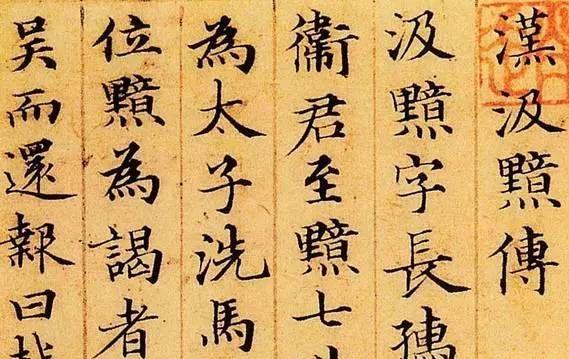 漢汲黯傳
汲黯字長孺
衛君至黯七
為太子洗馬
位黯為謁者
吳而還報曰